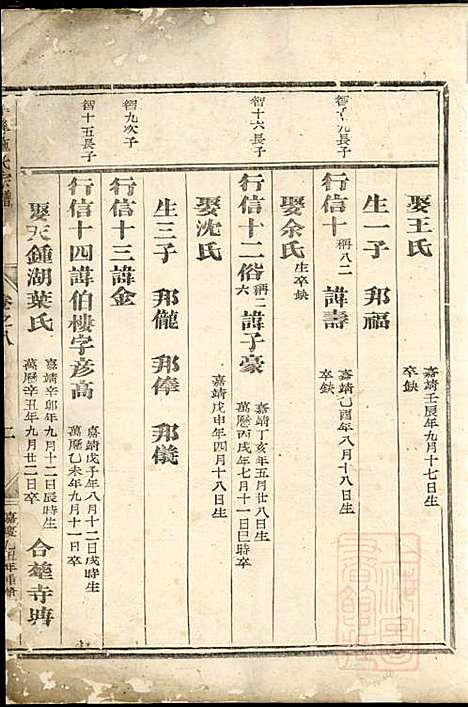 娶王氏 嘉靖壬辰年九月十七日生 卒缺
生一子 邦福
智十九長子
行信十 稱八二 諱壽 嘉靖乙酉年八月十八日生 卒缺
娶余氏 生卒缺
智十六長子
行信十二 俗稱二六 諱子豪 嘉靖丁亥年五月廿八日生 萬曆丙戌年七月十一日巳時卒
娶沈氏 嘉靖戊申年四月十八日生
生三子 邦儱 邦俸 邦儀
智九次子
行信十三諱金
智十五長子
行信十四諱伯樓字彥高 嘉靖戊子年八月十二日戌時生 萬曆乙未年九月十一日卒
娶天鍾湖葉氏 嘉靖辛卯年九月十二日辰時生 萬曆辛丑年九月廿二日卒 合塟寺塆
氏宗譜 卷之八 二 嘉慶 年重脩